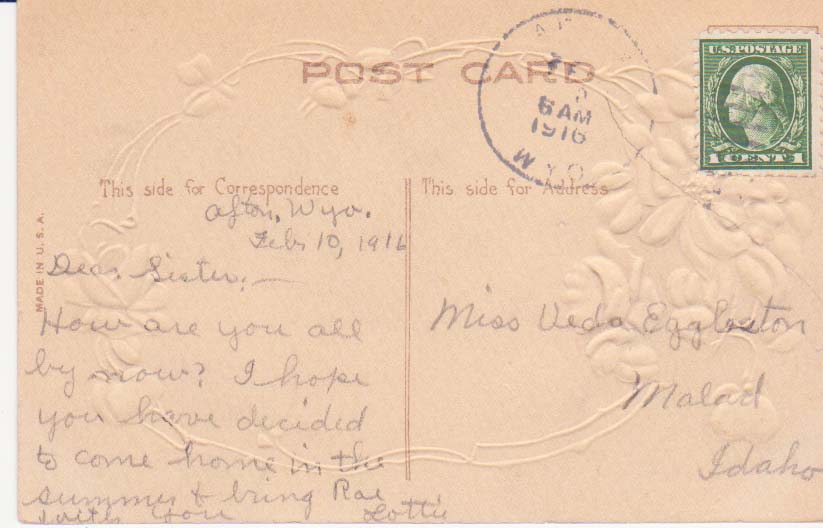 POST CARD
A
6 AM
1916
WYO.
U.S. POSTAGE
1 CENT 1
This side for Correspondence
This side for Address
MADE IN U.S.A.
Afton, Wyo.
Feb. 10, 1916
Dear Sister,—
How are you all
by now? I hope
you have decided
to come home in the
summer & bring Rae
with you
Lottie
Miss Veda Eggleston
Malad
Idaho